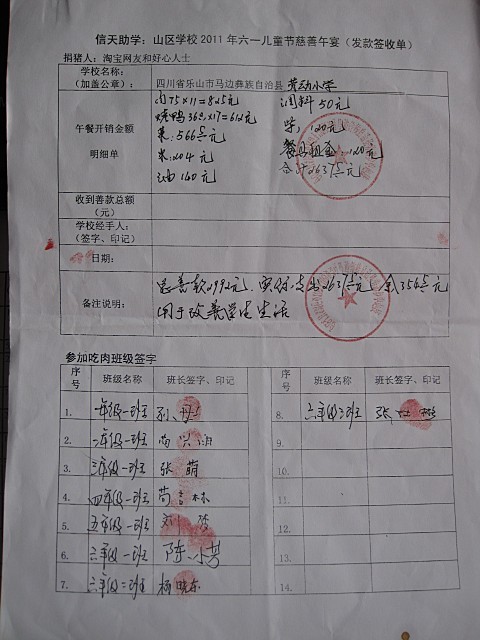 信天助学：山区学校 2011 年六一儿童节慈善午宴（发款签收单）
捐猪人：淘宝网友和好心人士
学校名称：
（加盖公章）： 四川省乐山市马边彝族自治县 劳动小学
午餐开销金额
明细单
肉75×11=825元 调料50元
烧鸭36元×17=612元 柴：120元
菜：566元 餐具租金：120元
米：204元 合计2637元
油140元
收到善款总额
（元）
学校经手人：
（签字、印记）
日期：
备注说明：
善款2992元，实付支出2637元，余355元
用于改善学生生活
参加吃肉班级签字
序号 班级名称 班长签字、印记 序号 班级名称 班长签字、印记
1. 一年级一班 孙丹 8. 六年级三班 张
2. 二年级一班 9.
3. 三年级一班 张萌 10.
4. 四年级一班 林 11.
5. 五年级一班 刘 12.
6. 六年级一班 陈小芳 13.
7. 六年级二班 杨晓东 14.